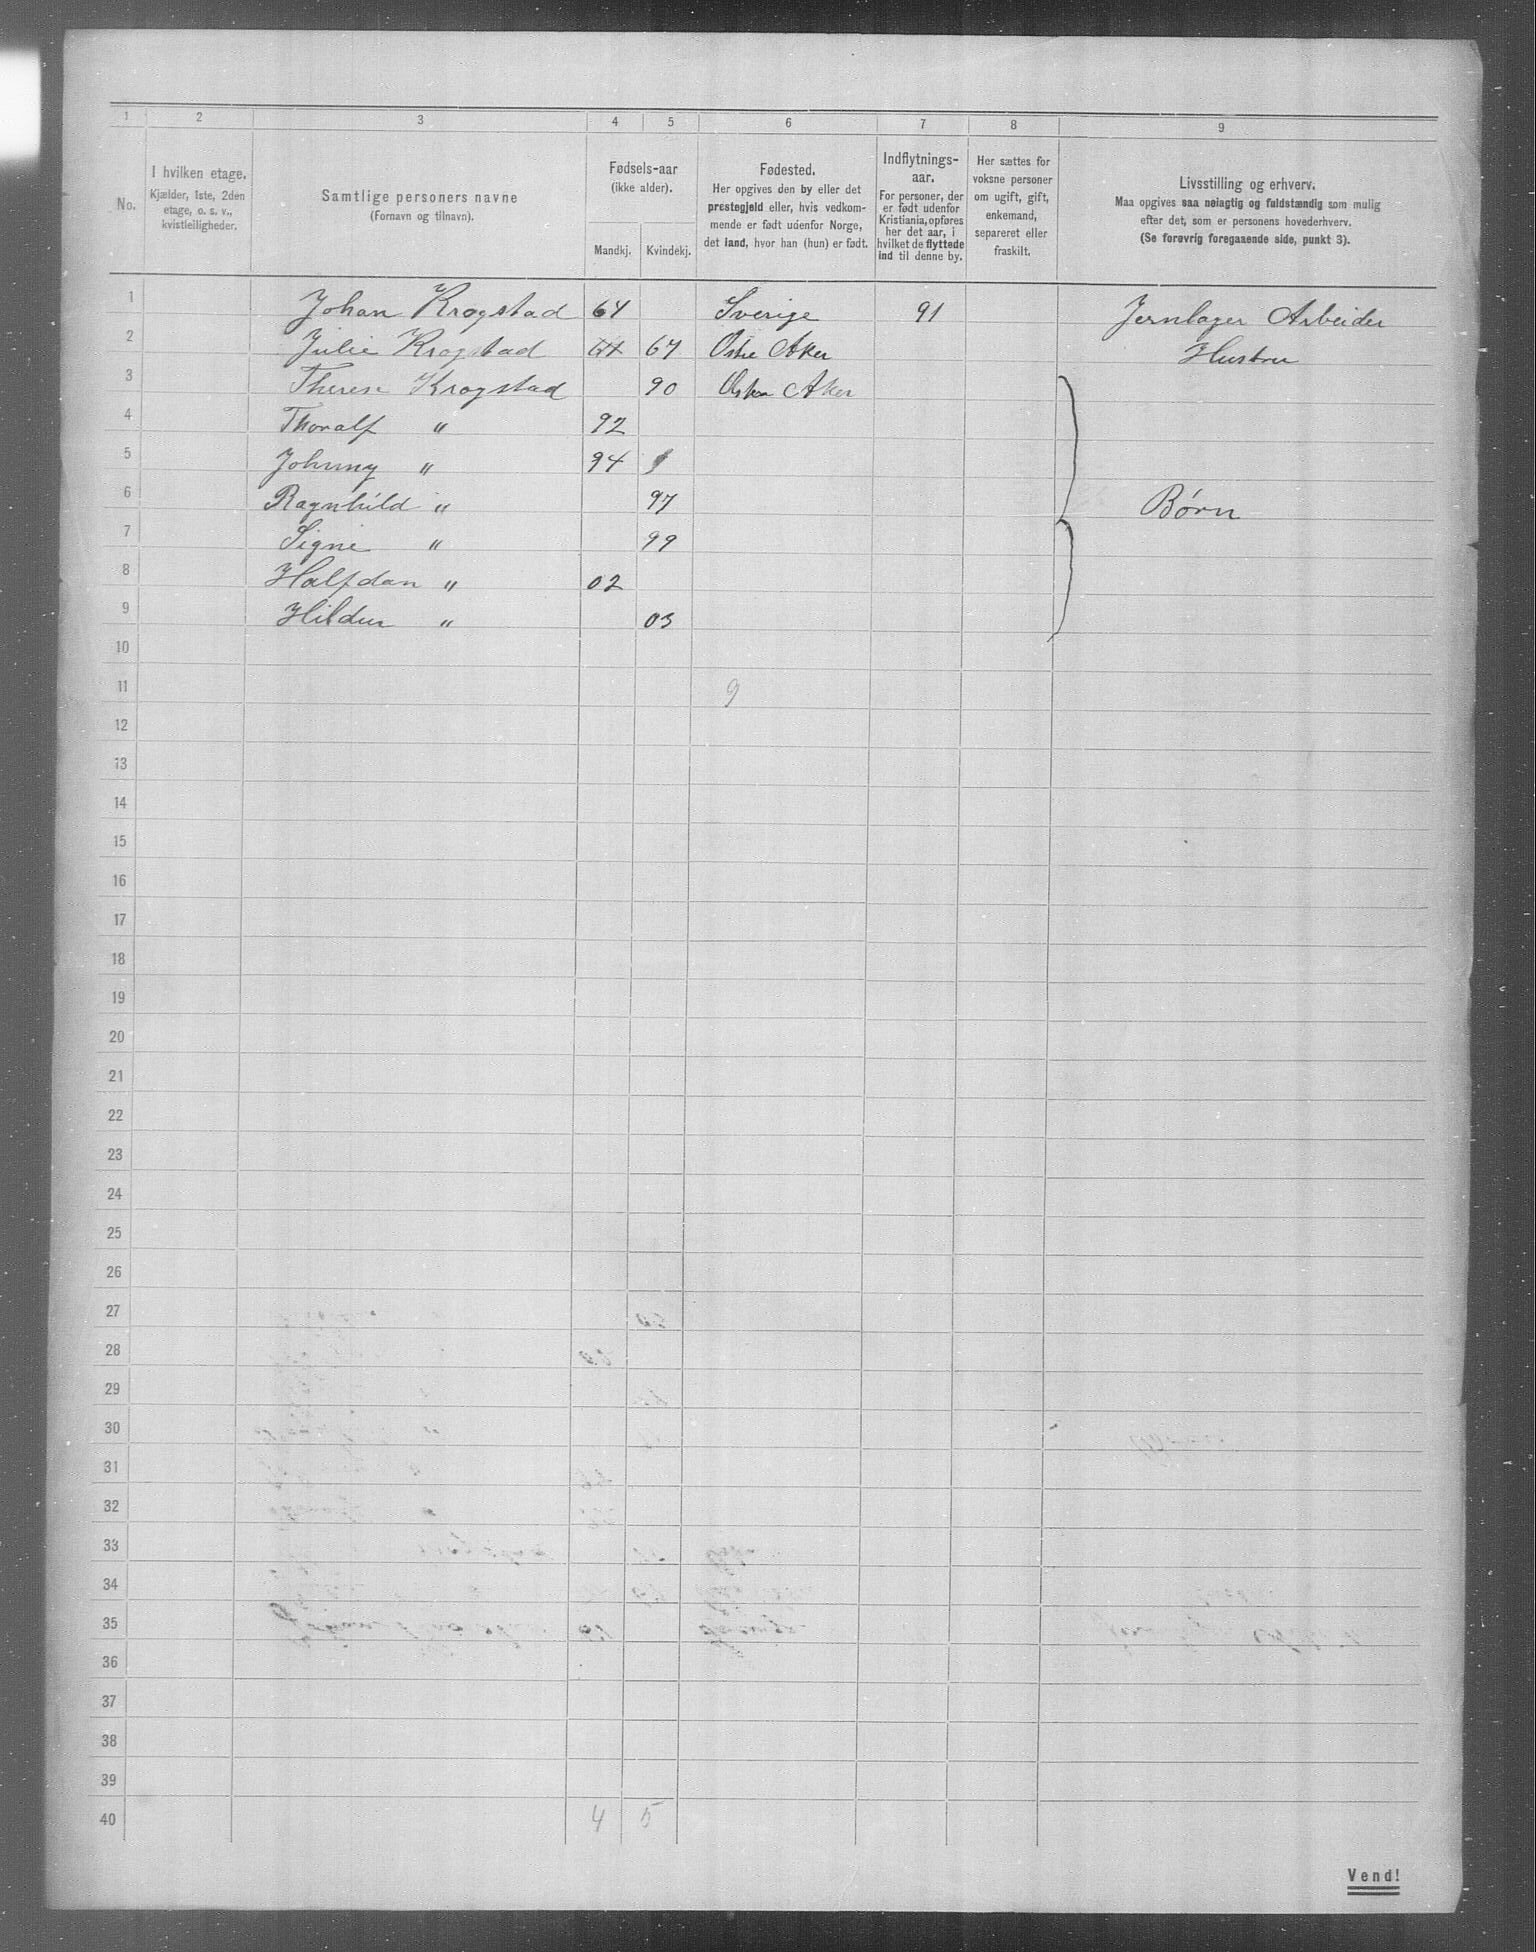 1 2 3 4 5 6 7 8 9
No.
I hvilken etage.
Kjælder, 1ste, 2den
etage, o. s. v.,
kvistleiligheder.
Samtlige personers navne
(Fornavn og tilnavn).
Fødsels-aar
(ikke alder).
Mandkj. Kvindekj.
Fødested.
Her opgives den by eller det
prestegjeld eller, hvis vedkom-
mende er født udenfor Norge,
det land, hvor han (hun) er født.
Indflytnings-
aar.
For personer, der
er født udenfor
Kristiania, opføres
her det aar, i
hvilket de flyttede
ind til denne by.
Her sættes for
voksne personer
om ugift, gift,
enkemand,
separeret eller
fraskilt.
Livsstilling og erhverv.
Maa opgives saa nøiagtig og fuldstændig som mulig
efter det, som er personens hovederhverv.
(Se forøvrig foregaaende side, punkt 3).
1 Johan Krogstad 64 Sverige 91 Jernlager Arbeider
2 Julie Krogstad 67 Østre Aker Hustru
3 Therese Krogstad 90 Østre Aker
4 Thoralf " 92
5 Johnny " 94
6 Ragnhild " 97 Børn
7 Signe " 99
8 Halfdan " 02
9 Hildur " 03
10
11 9
12
13
14
15
16
17
18
19
20
21
22
23
24
25
26
27
28
29
30
31
32
33
34
35
36
37
38
39
40 4 5
Vend!